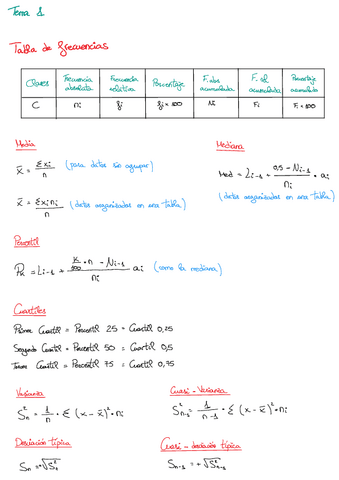 Tema 1
Tabla de frecuencias
Clases | Frecuencia absoluta | Frecuencia relativa | Porcentaje | F. abs acumulada | F. rel acumulada | Porcentaje acumulado
C | ni | fi | fi × 100 | Ni | Fi | Fi × 100
Media
x̄ = Σxi / n (para datos sin agrupar)
x̄ = Σxi ni / n (datos organizados en una tabla)
Mediana
Med = Li-1 + (0,5 - Ni-1) / ni • ai
(datos organizados en una tabla)
Percentil
Pk = Li-1 + (k/100 • n - Ni-1) / ni ai (como la mediana)
Cuartiles
Primer Cuartil = Percentil 25 = Cuartil 0,25
Segundo Cuartil = Percentil 50 = Cuartil 0,5
Tercer Cuartil = Percentil 75 = Cuartil 0,75
Varianza
Sn² = 1/n • Σ (x - x̄)² • ni
Cuasi-Varianza
Sn-1² = 1/(n-1) • Σ (x - x̄)² • ni
Desviación típica
Sn = +√Sn²
Cuasi-desviación típica
Sn-1 = +√Sn-1²